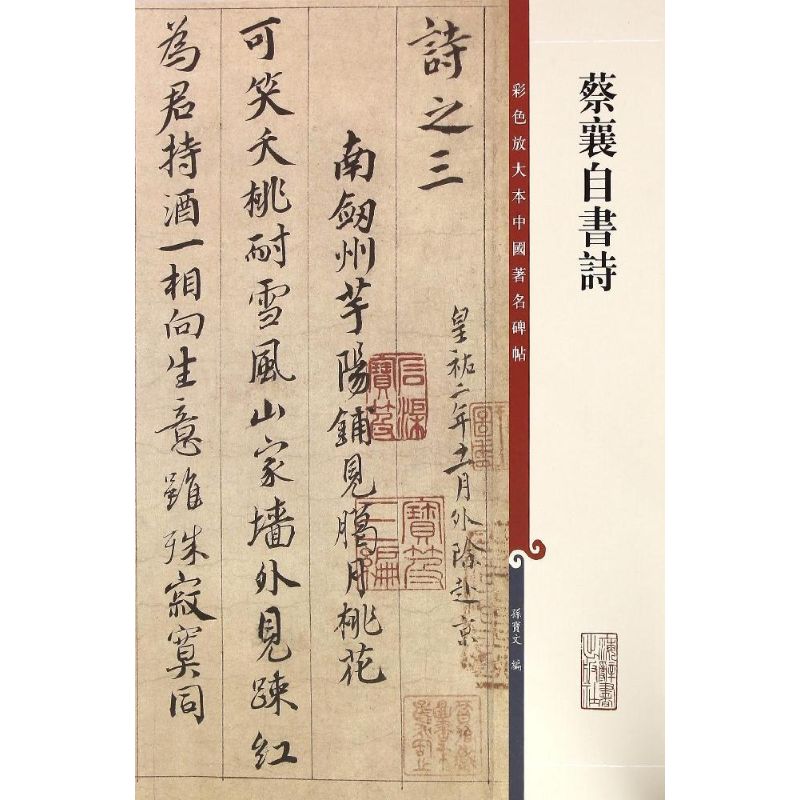 蔡襄自書詩
彩色放大本中國著名碑帖
孫寶文 編
海辭書出版社
詩之三
皇祐二年十一月外除赴京
南劔州芋陽鋪見臘月桃花
可笑夭桃耐雪風山家墻外見踈紅
為君持酒一相向生意雖殊寂寞同
石渠寶笈
寶笈三編